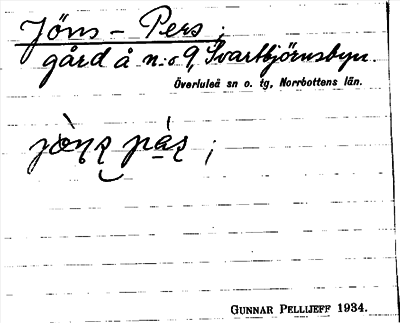 Jöns - Pers ;
gård å n:o 9, Svartbjörnsbyn.
Överluleå sn o. tg, Norrbottens län.
GUNNAR PELLIJEFF 1934.